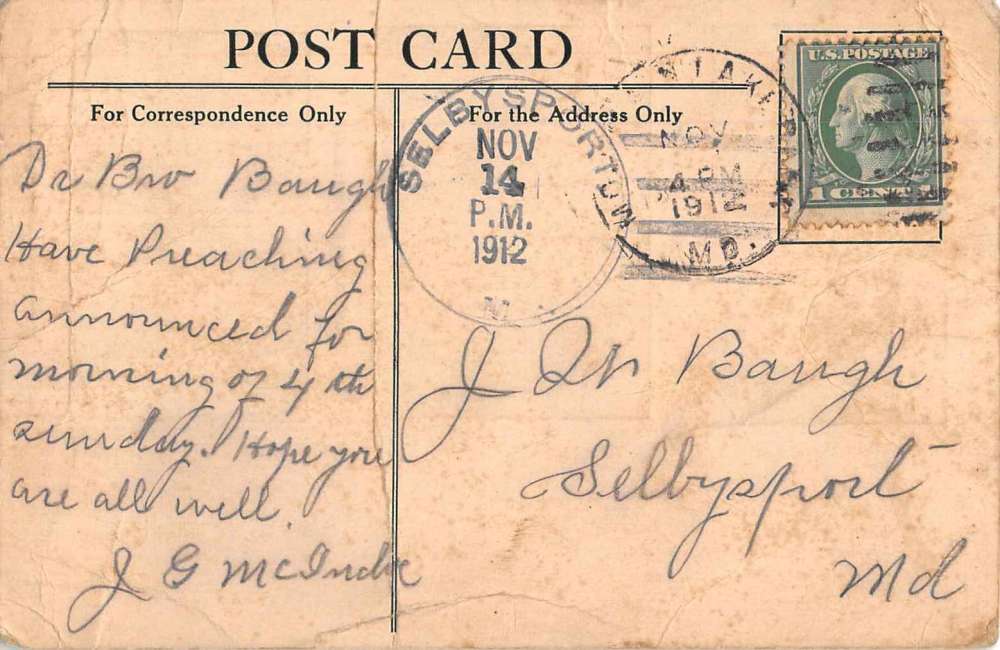 POST CARD
For Correspondence Only
For the Address Only
U.S. POSTAGE
1 CENT
SELBYSPORT
NOV
14
P.M.
1912
NOV
4 PM
1912
MD.
Dr Bro Baugh
Have Preaching
announced for
morning of 4th
sunday. Hope you
are all well.
J G McIndoe
J Baugh
Selbysport
Md